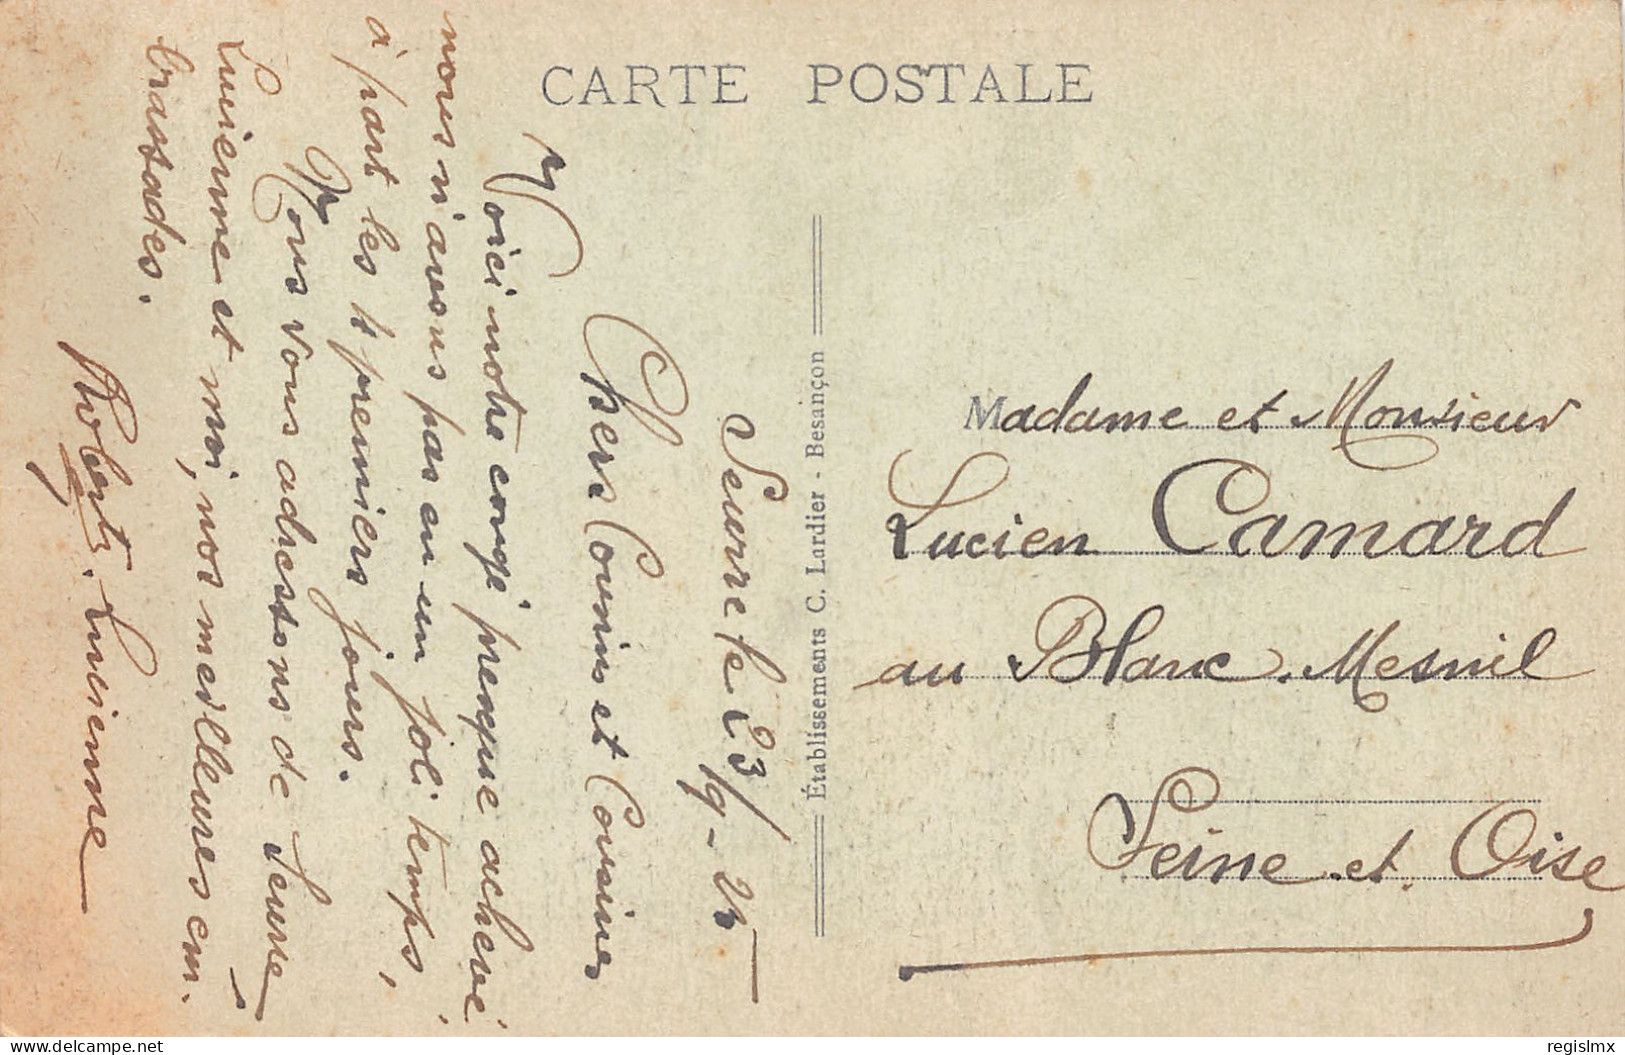 CARTE POSTALE
Seurre le 23/9-25
Chers Cousins et Cousines
Voici notre congé presque achevé,
nous n'avons pas eu un joli temps,
à part les premiers jours.
Nous vous adressons de Seurre,
Lucienne et moi, nos meilleures em-
brassades.
Robert. Lucienne
Établissements C. Lardier - Besançon
Madame et Monsieur
Lucien Camard
au Blanc-Mesnil
Seine-et-Oise
delcampe.net
regislmx